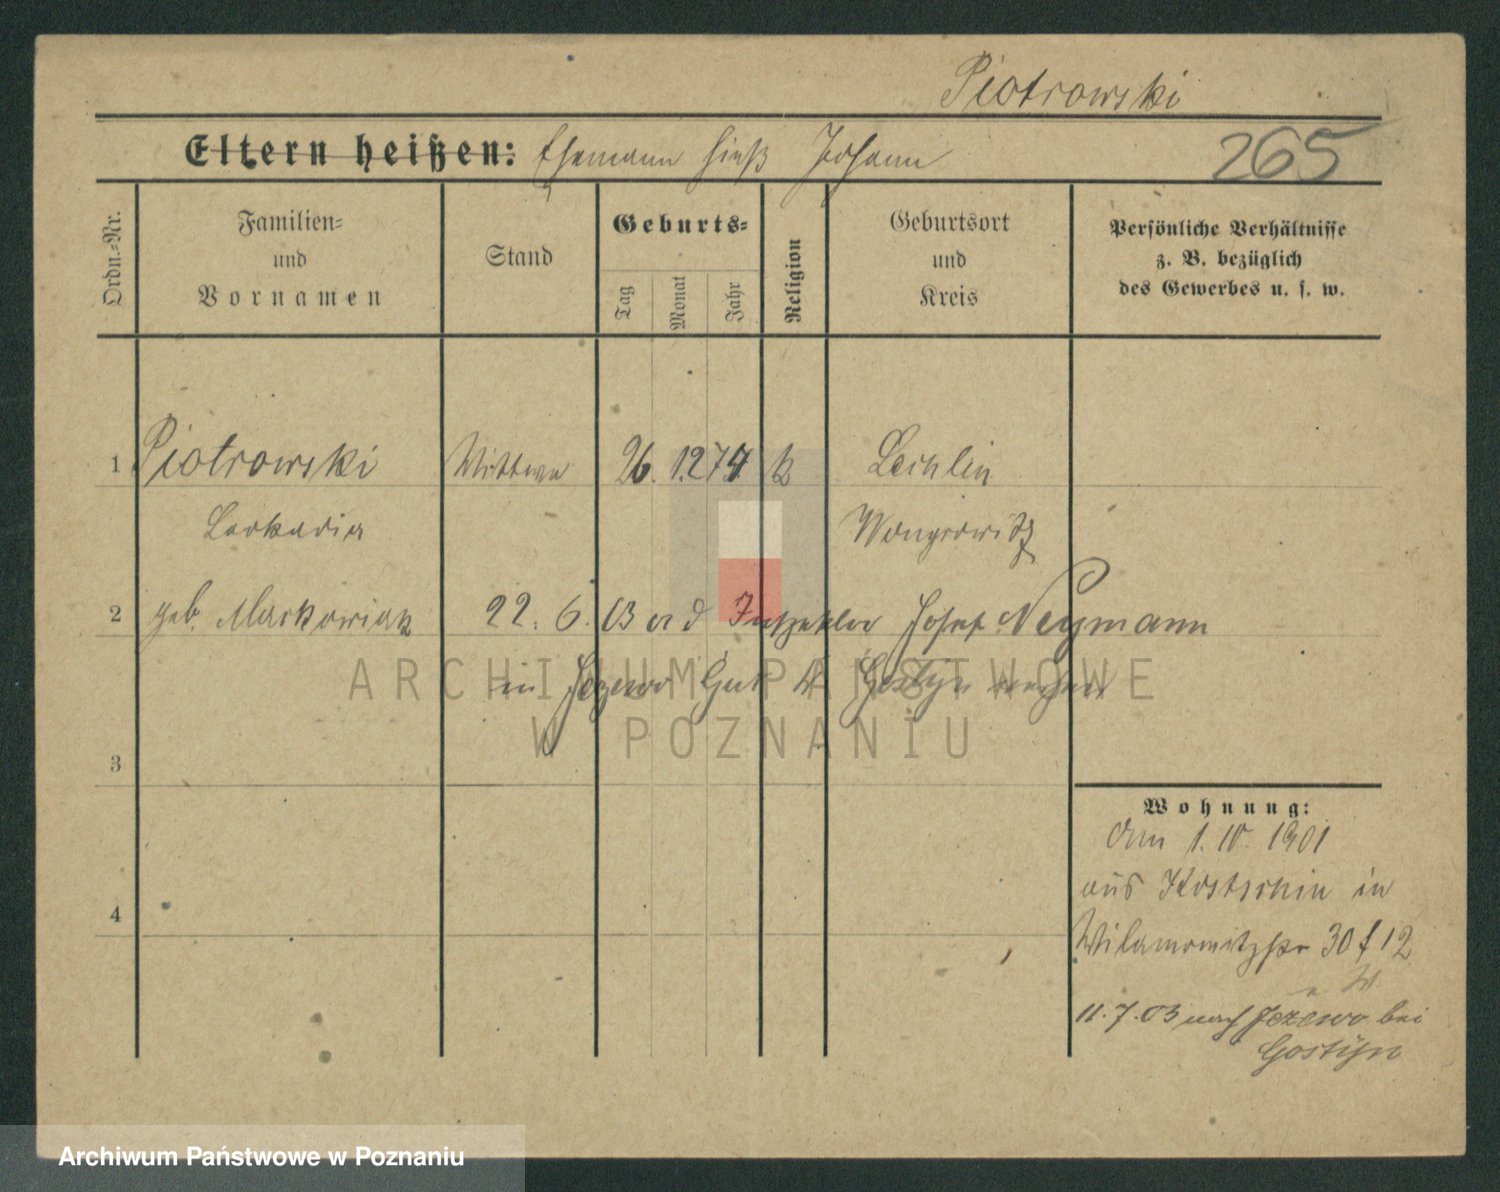 Piotrowski
Eltern heißen: Ehemann hieß Johann
265
Ordn.=Nr.
Familien=
und
Vornamen
Stand
Geburts=
Tag
Monat
Jahr
Religion
Geburtsort
und
Kreis
Persönliche Verhältnisse
z. B. bezüglich
des Gewerbes u. s. w.
1 Piotrowski Wittwe 26. 12 74 k Lechlin
Leokadia Wongrowitz
2 geb. Markowiak 22. 6. 03 Josef Neymann
in Jezewo Gut Kr Gostyn
3
Wohnung:
am 1. IV. 1901
aus Kostschin in
Wilamowitzstr 30 f 12
4
11.7.03 nach Jezewo bei
Gostyn
ARCHIWUM PAŃSTWOWE
W POZNANIU
Archiwum Państwowe w Poznaniu